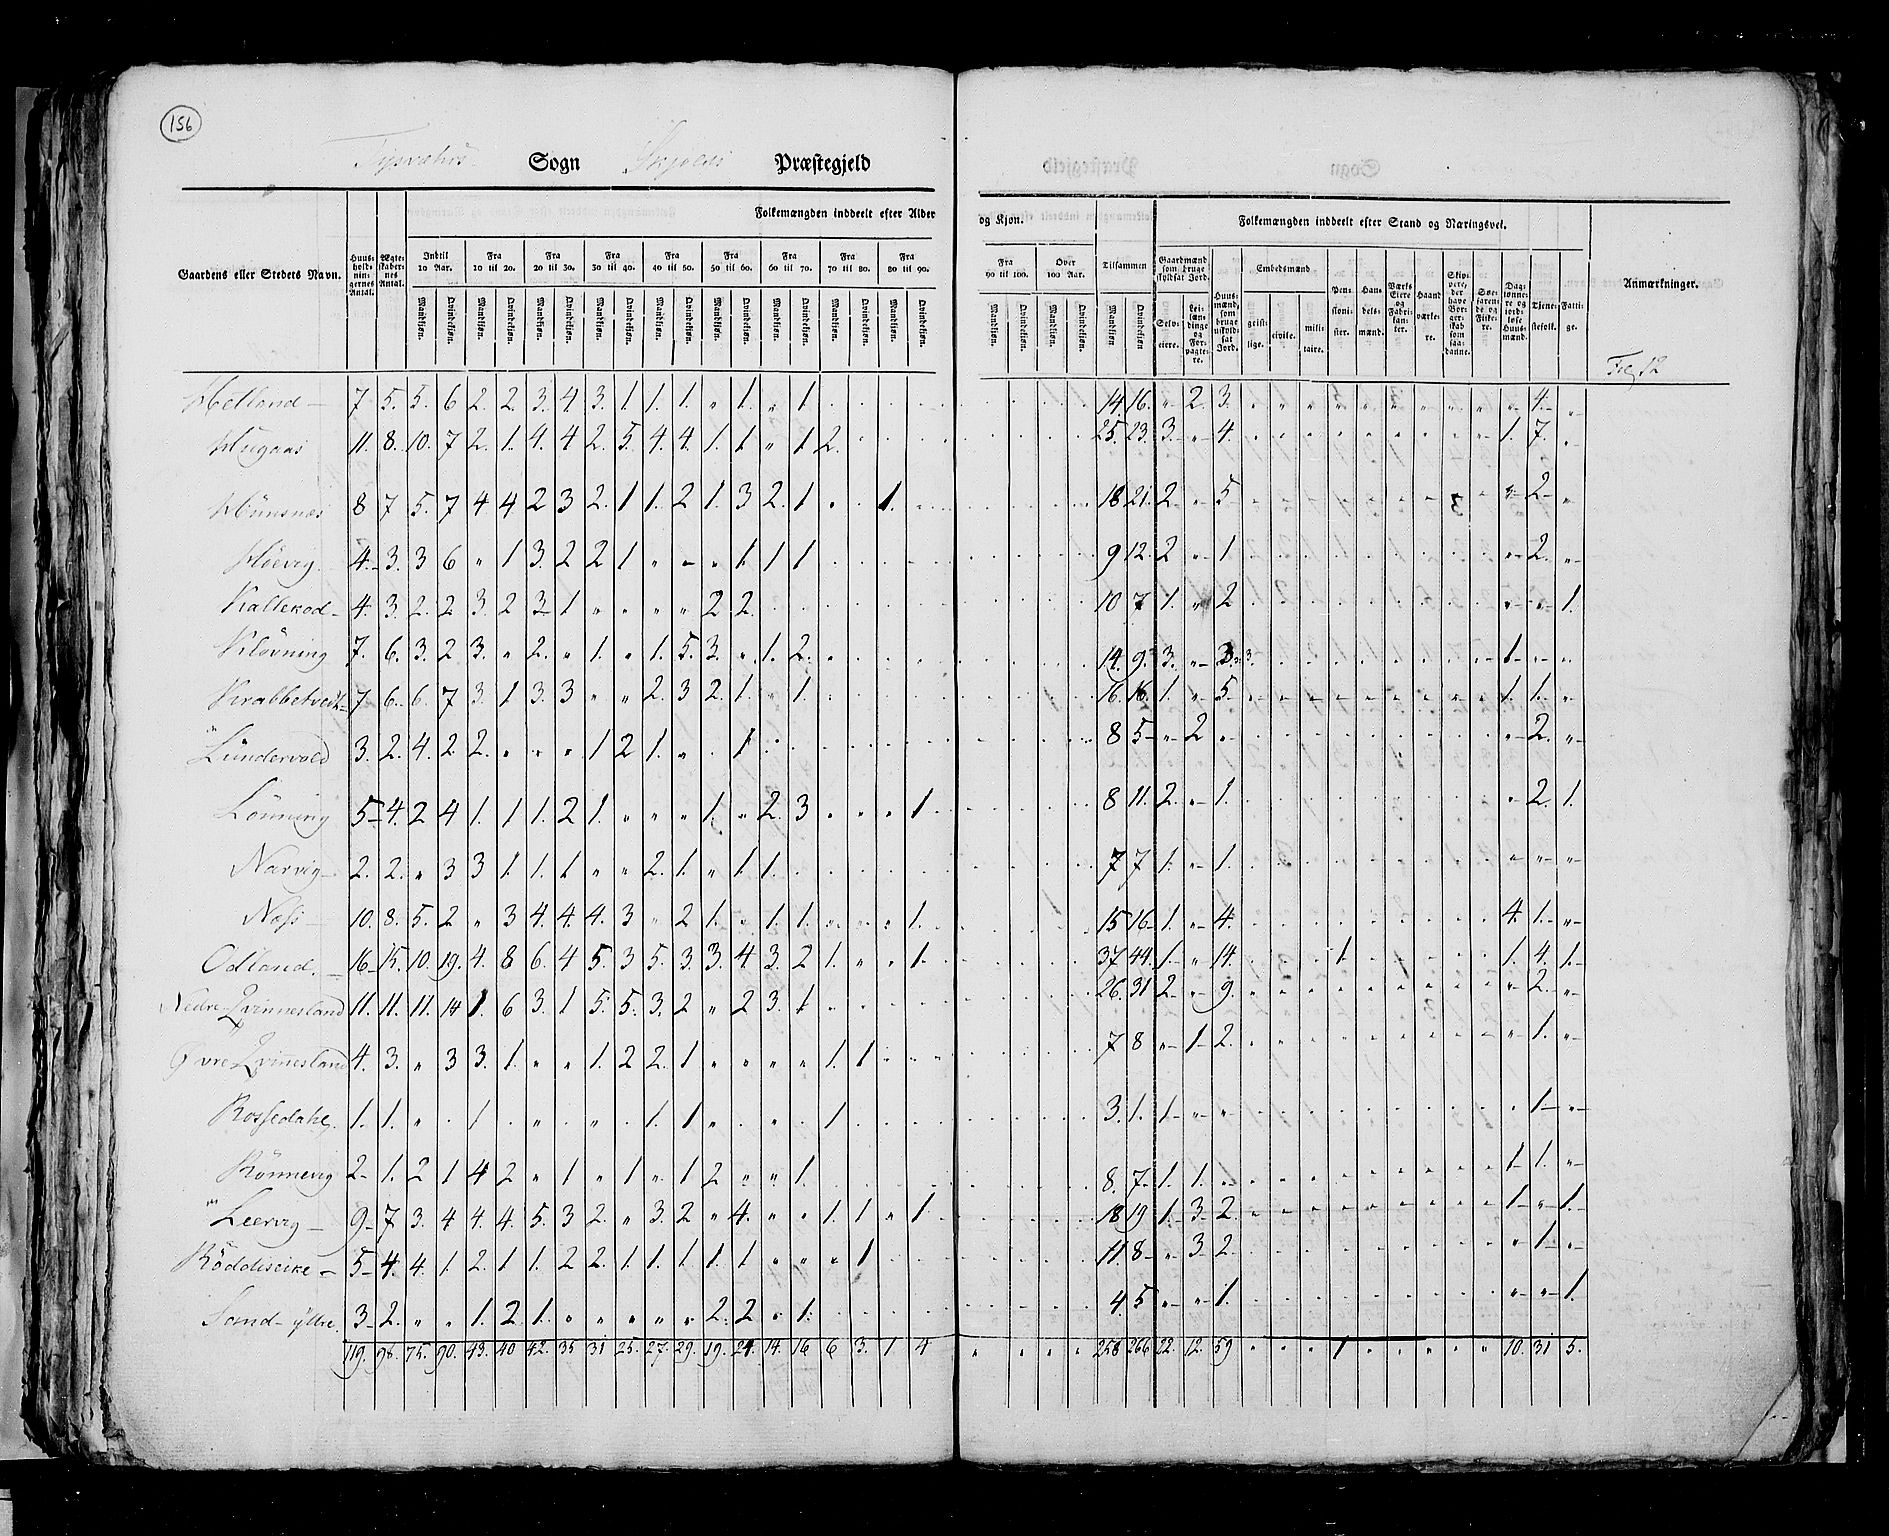 156
Tysvær Sogn Skjold Præstegjeld
Folkemængden inddeelt efter Alder og Kjøn. Folkemængden inddeelt efter Stand og Næringsvei.
Gaardens eller Stedets Navn. Huusholdningernes Antal. Ægteskabernes Antal. Indtil 10 Aar. Fra 10 til 20. Fra 20 til 30. Fra 30 til 40. Fra 40 til 50. Fra 50 til 60. Fra 60 til 70. Fra 70 til 80. Fra 80 til 90. Fra 90 til 100. Over 100 Aar. Tilsammen Gaardmænd som bruge skyldsat Jord. Embedsmænd Anmærkninger.
Mandkjøn. Qvindekjøn. Selveiere. Leilændinge og Forpagtere. Huusmænd, som bruge uskyldsat Jord. geistlige. civile. militaire. Pensionister. Handelsmænd. Værks Eiere og Fabrikanter. Haandværkere. Skippere, der have Borgerskab som saadanne. Søefarende og Fiskere. Daglønnere og jordløse Huusmænd. Tjenestefolk. Fattige.
Helland 7 5. 5. 6 2. 2. 3. 4 3. 1. 1. 1. " 1. " 1 14. 16. " 2. 3. 4. "
Hugaas 11. 8. 10. 7 2. 1. 4. 4 2. 5. 4. 4. 1. 1. " 1 2. 25. 23. 3. " 4. 1. 7. "
8 7 5. 7 4 4 2 3 2. 1 1. 2 1. 3 2. 1 . . 1. 18 21. 2 " 5 3 " 2 "
4. 3. 3 6 " 1 3. 2 2 1 " " " 1 1 1 9 12. 2 " 1 " 2. "
4. 3. 2. 2 3. 2 3 1 " " " " 2 2. 10 7 1. " 2 " " 1.
Kløvning 7. 6. 3. 2 3. " 2. " 1. " 1. 5. 3. " 1. 2. 14. 9. 3. " 3 1 " "
7 6. 6. 7 3. 1 3. 3 " " 2. 3 2. 1. " 1. 16. 16. 1. " 5. 1. 1. "
3. 2. 4. 2 2. " " " 1 2 1. " . 1 8 5 " 2 " " 2. "
Lönning 5 4. 2 4 1. 1 1. 2 1. " " " 1. " 2. 3 " " " 1 8 11. 2. " 1. " 2. 1.
Narvig 2. 2. " 3 3 1. 1. 1 " " 2. 1. " 1 1. 7 7 1. " 1. " " "
Næss 10. 8. 5. 2 " 3 4. 4. 4. 3 " 2 1. " 1. 1. " " " 1. 15 16 1. " 4. 4. 1. "
Odland. 16 15. 10. 19. 4. 8 6. 4 5. 3 5. 3. 3. 4 3. 2 1. " " 1. 37 44. 1 " 14. 1 1. 4. 1.
Nedre Qvinnesland 11. 11. 11. 14 1. 6 3. 1 5. 5. 3. 2 " 2 3. 1 26. 31 2 " 9. " 2. "
Øvre Qvinnesland 4. 3. " 3 3. 1. " " 1. 2 2. 1 " " " " 1. 1 7 8 " 1 2. " 1. "
Rossedahl. 1. 1. " . 1 . " . " . 1. 1 " . " . 1 3. 1. 1 " " 1 "
Rönnevig 2 1. 2 1 4 2 " 1 " 1 " 1 2 " " 1. 8. 7 1. 1. " 1 1. "
Leervig 9 7 3. 4 4. 4. 5. 3 2. " 3. 2 " 4. " " 1. 1 " 1 18 19 1. 3 2. 1 " 1.
5 4. 4. 1. 2. 1 1. 2 2. 1. 1. 1. 1. 1 " " " 1 11. 8 " 3 2. " 1 "
Sand-ytre. 3 2. " " 1. 2 1. " " " " " 2. 2 " 1. 4 5 " " 1. " " 1.
119. 98. 75. 90. 43. 40 42. 35 31 25. 27. 29. 19. 21. 14. 16 6 3. 1 4 258 266 22. 12. 59 1 10. 31 5.